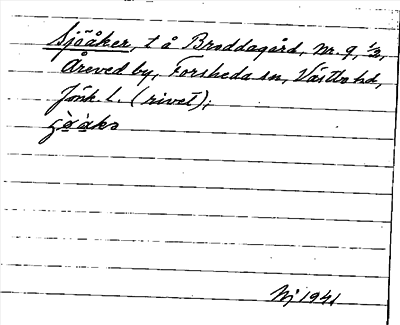 Sjöåker, t å Broddagård, nr. 9, 1/2,
Åreved by, Forsheda sn, Västbo hd,
Jönk. l. (rivet);
Nj 1941